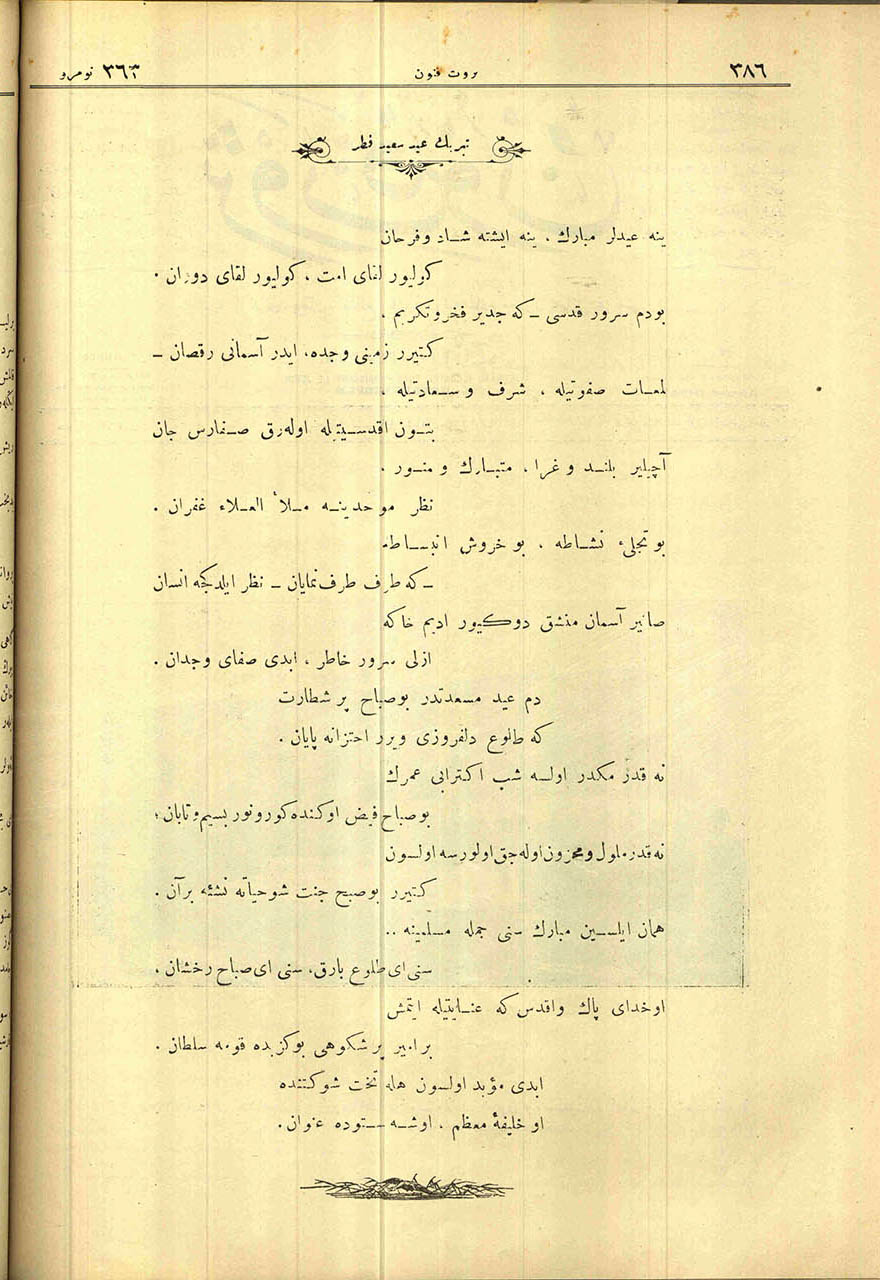 ٣٨٦
ثروت فنون
نومرو ٣٦٣
تبریك عید سعید فطر
ینه عیدلر مبارك ، ینه ایشته شـاد وفرحان
كولیور لقای امت ، كولیور لقای دوران .
بودم سرور قدسی ـ كه جدیر فخر وتكریم ،
كتیرر زمینی وجده، ایدر آسمانی رقصان ـ
لمعـات صفوتیله ، شرف و سـعادتیله ،
بتـون اقدسـیتیله اوله‌رق صـفارس جان
آچیلیر بلنـد و غرا ، متبـارك و منـور .
نظر موحدینـه مـلأ العـلاء غفران .
بو تجلیء نشـاطه ، بو خروش انبسـاطه
ـ كه طرف طرف نمایان ـ نظر ایلدكجه انسان
صانیر آسمان منشق دوكیور ادیم خاكه
ازلی سرور خاطر ، ابدی صفای وجدان .
دم عید مسعدتدر بوصباح پر شطارت
كه طلوع دلفروزی ویرر احتزانه پایان .
نه قدر مكدر اولـه شب اكترابی عمرك
بوصباح فیض اوكنده كورونور بسیم وتابان ؛
نه قدر ملول ومحزون اوله‌جق اولورسه اولـون
كتیرر بوصبح جنت شو حیاته نشئه برآن .
همان ایلـسین مبارك سنی جمله مسلمینه ..
سنی ای طلوع بارق، سنی ای صباح رخشان ،
اوخدای پاك واقدس كه عنـایتیله ایتمش
بر امیر پر شكوهی بوكزیده قومه سلطان .
ابدی مؤبد اولـون هله تخت شوكتنده
او خلیفهٔ معظم ، اوشـه سـتوده عنوان.